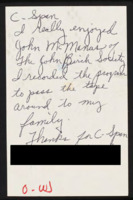 C-Span
I really enjoyed
John McManus of
The John Birch Society
I recorded the program
to pass the tape
around to my
family.
Thanks for C-Span
O-W